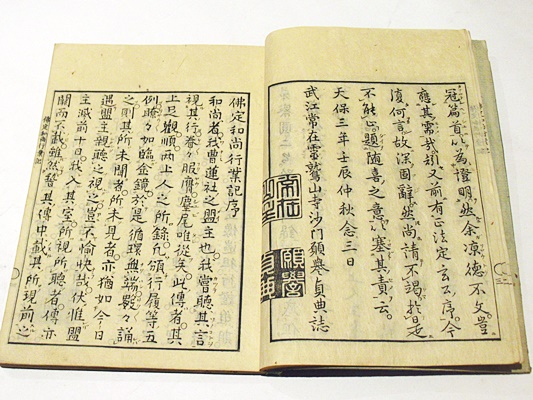 冠篇首以為證明然余涼德不文豈
應其需哉又前有正法定序今
復何言故深固辭然尚請不於是
不能止題随喜之意以塞其責云
天保三年壬辰仲秋念三日
武江常在靈鷲山寺沙門願譽貞典誌
願譽
佛定和尚行業記序
和尚者我曹蓮社之盟主也我嘗聽其言
視其行眷々服膺塵尾唯從矣此傳者其
上足觀順兩上人之所錄允頒行履等五
例々如臨金鏡於是循環無端數々誦
之則其所未聞者所未見者亦猶如今日
遇盟主親聽之視之豈不愉快哉伏惟盟
主滅前十日我入其室所視所聽者傳亦
闕而不載雖然其傳中載其所現前之